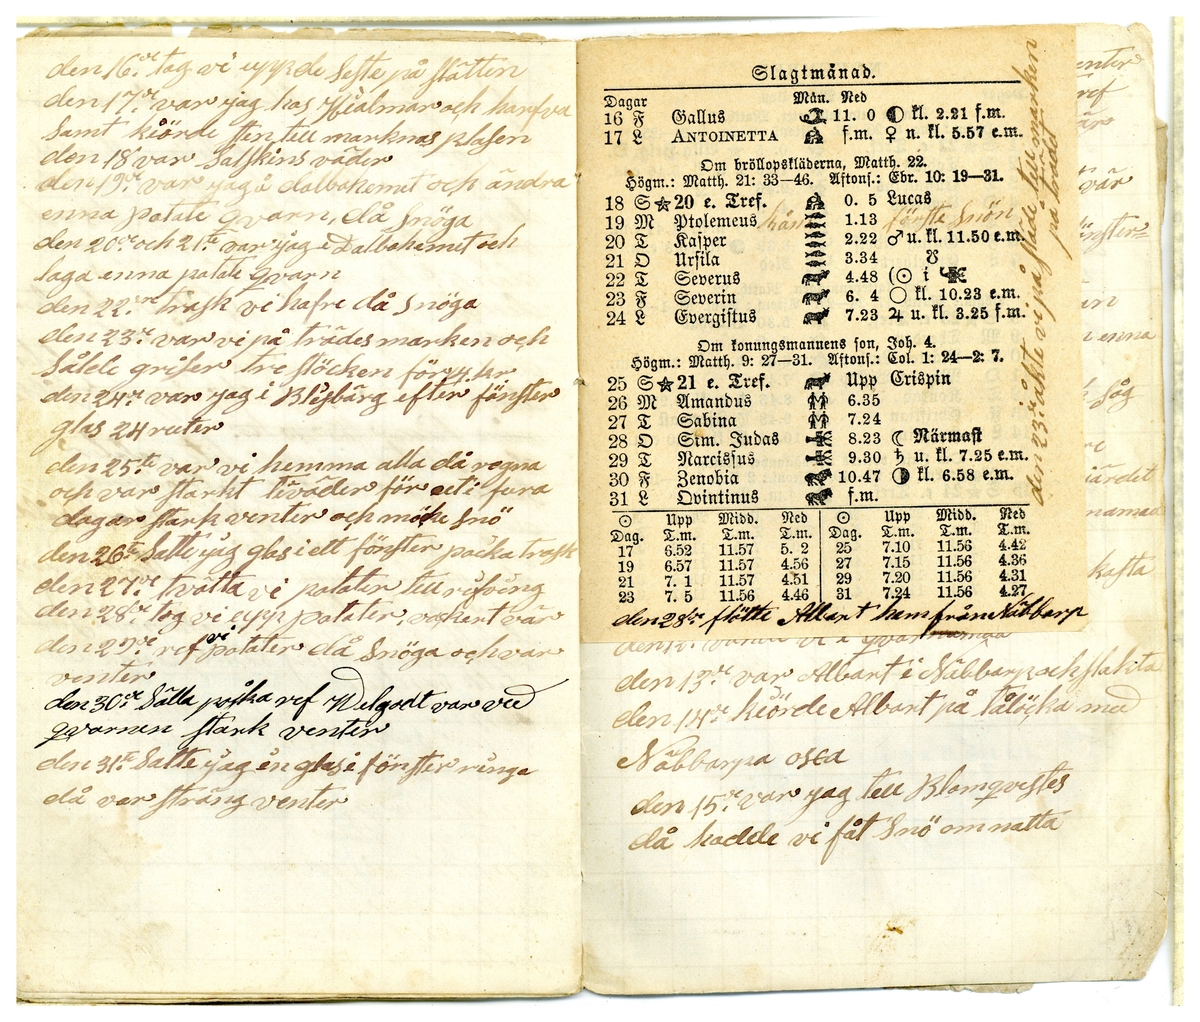 den 16de tog vi upp de seste på slätten
den 17de var jag hos Hjalmar och harfva
samt kiörde sten till marknas plasen
den 18 var Salskins väder
den 19de var jag å dalbohemet och ändra
enna potate qvarn, då Snöga
den 20de och 21te var jag i Dalbohemet och
laga enna potate qvarn
den 22dre trask vi hafre då Snöga
den 23de var vi på trädes marken och
Sålde griser tre stöcken för 14 kr
den 24de var jag i Blisbärg efter fönster
glas 24 ruter
den 25te var vi hemma alla då regna
och var starkt tiväder för ett i fora
dagar stark venter och möke Snö
den 26te Satte jag glas i ett fönster pocka trask
den 27de tvätta vi potater till rifving
den 28de tog vi upp potater, vackert vär
den 29de ref vi potater då Snöga och var
venter
den 30de Sålla poska ref Welgodt var ved
qvarnen stark venter
den 31te Satte jag en glas i fönster ringa
då var sträng venter
Slagtmånad.
Dagar Mån. Ned
16 F Gallus 11. 0 ◐ kl. 2.21 f.m.
17 L ANTOINETTA f.m. ♀ n. kl. 5.57 e.m.
Om bröllopskläderna, Matth. 22.
Högm.: Matth. 21: 33—46. Aftons.: Ebr. 10: 19—31.
18 S ★ 20 e. Tref. 0. 5 Lucas
19 M Ptolemeus 1.13 förste Snön
20 T Kasper 2.22 ♂ u. kl. 11.50 e.m.
21 O Ursila 3.34 ☋
22 T Severus 4.48 (☉ i
23 F Severin 6. 4 ○ kl. 10.23 e.m.
24 L Evergistus 7.23 ♃ u. kl. 3.25 f.m.
Om konungsmannens son, Joh. 4.
Högm.: Matth. 9: 27—31. Aftons.: Col. 1: 24—2: 7.
25 S ★ 21 e. Tref. Upp Crispin
26 M Amandus 6.35
27 T Sabina 7.24
28 O Sim. Judas 8.23 ☾ Närmast
29 T Narcissus 9.30 ♄ u. kl. 7.25 e.m.
30 F Zenobia 10.47 ◑ kl. 6.58 e.m.
31 L Qvintinus f.m.
☉ Upp Midd. Ned ☉ Upp Midd. Ned
Dag. T.m. T.m. T.m. Dag. T.m. T.m. T.m.
17 6.52 11.57 5. 2 25 7.10 11.56 4.42
19 6.57 11.57 4.56 27 7.15 11.56 4.36
21 7. 1 11.57 4.51 29 7.20 11.56 4.31
23 7. 5 11.56 4.46 31 7.24 11.56 4.27
den 28de flötte Albart hem från Näbbarp
den 23de åkte vi på slade till marken
på träde
den 13de var Albart i Näbbarp och slakta
den 14de kiörde Albart på tålöcka med
Näbbarpa osea
den 15de var jag till Blomqvistes
då hadde vi fåt Snö om natta
venter
ref
vär
enna
såg
kasta